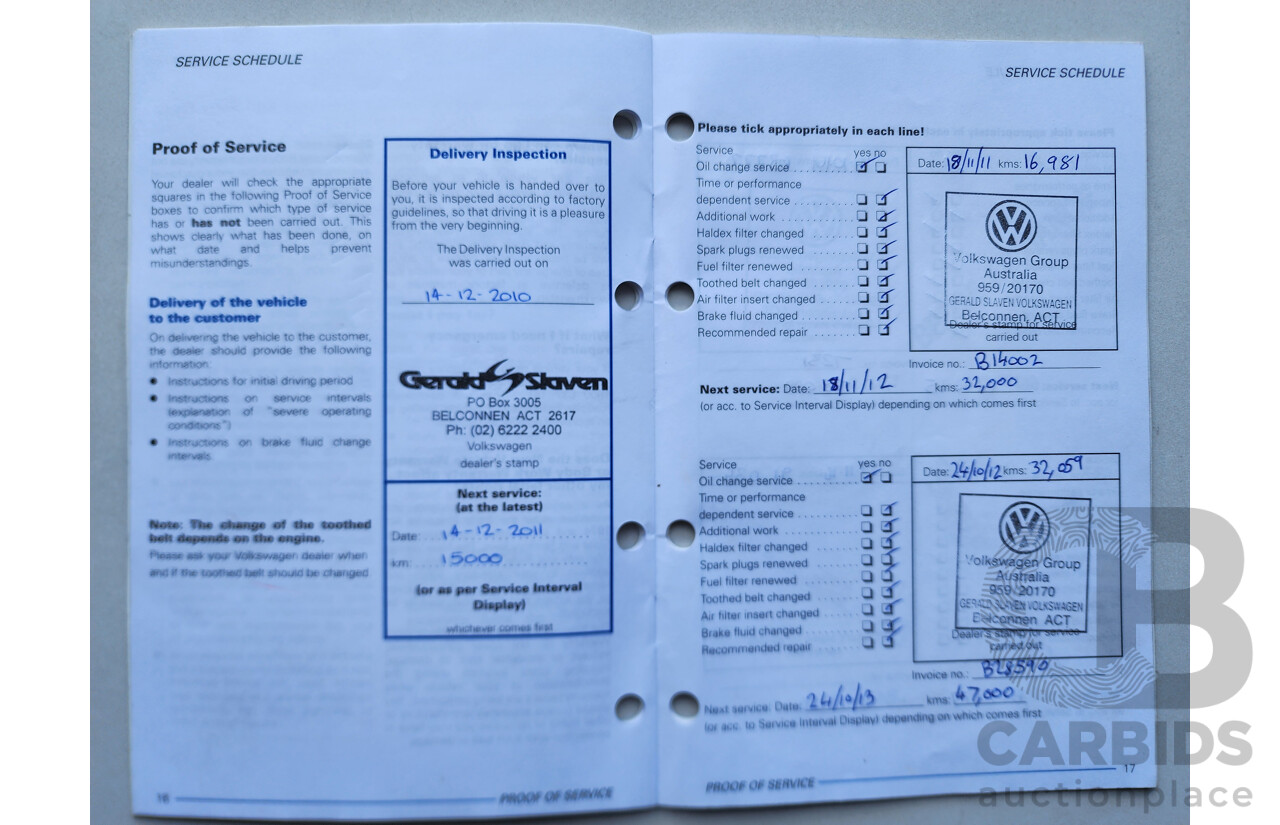 SERVICE SCHEDULE
Proof of Service
Your dealer will check the appropriate
squares in the following Proof of Service
boxes to confirm which type of service
has or has not been carried out. This
shows clearly what has been done, on
what date and helps prevent
misunderstandings.
Delivery of the vehicle
to the customer
On delivering the vehicle to the customer,
the dealer should provide the following
information:
• Instructions for initial driving period
• Instructions on service intervals
(explanation of "severe operating
conditions")
• Instructions on brake fluid change
intervals.
Note: The change of the toothed
belt depends on the engine.
Please ask your Volkswagen dealer when
and if the toothed belt should be changed
Delivery Inspection
Before your vehicle is handed over to
you, it is inspected according to factory
guidelines, so that driving it is a pleasure
from the very beginning.
The Delivery Inspection
was carried out on
14-12-2010
Gerald Slaven
PO Box 3005
BELCONNEN ACT 2617
Ph: (02) 6222 2400
Volkswagen
dealer's stamp
Next service:
(at the latest)
Date: 14-12-2011
km: 15000
(or as per Service Interval
Display)
whichever comes first
16 PROOF OF SERVICE
SERVICE SCHEDULE
Please tick appropriately in each line!
Service yes no
Oil change service
Time or performance
dependent service
Additional work
Haldex filter changed
Spark plugs renewed
Fuel filter renewed
Toothed belt changed
Air filter insert changed
Brake fluid changed
Recommended repair
Date: 18/11/11 kms: 16,981
Volkswagen Group
Australia
959/20170
GERALD SLAVEN VOLKSWAGEN
Belconnen, ACT
Dealer's stamp for service
carried out
Invoice no.: B14002
Next service: Date: 18/11/12 kms: 32,000
(or acc. to Service Interval Display) depending on which comes first
Service yes no
Oil change service
Time or performance
dependent service
Additional work
Haldex filter changed
Spark plugs renewed
Fuel filter renewed
Toothed belt changed
Air filter insert changed
Brake fluid changed
Recommended repair
Date: 24/10/12 kms: 32,059
Volkswagen Group
Australia
959/20170
GERALD SLAVEN VOLKSWAGEN
Belconnen ACT
Dealer's stamp for service
carried out
Invoice no.: B28590
Next service: Date: 24/10/13 kms: 47,000
(or acc. to Service Interval Display) depending on which comes first
PROOF OF SERVICE 17
CARBIDS
auctionplace